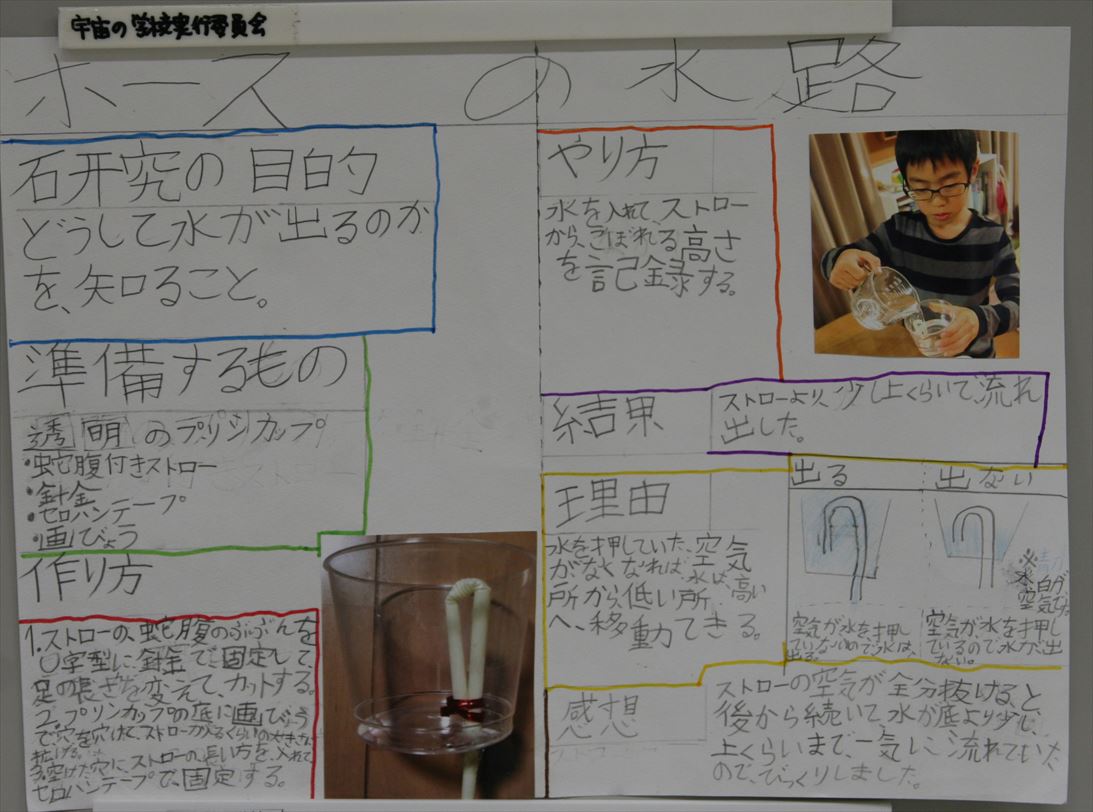 宇宙の学校実行委員会
ホースの水路
研究の目的
どうして水が出るのか
を、知ること。
準備するもの
透明のプリンカップ
・蛇腹付きストロー
・針金
・セロハンテープ
・画びょう
作り方
1.ストローの、蛇腹のぶぶんを
U字型に、針金で固定して、
足の長さを変えて、カットする。
2.プリンカップの底に画びょう
で穴を空けて、ストローが入るくらいの大きさに
拡げる。
3.空けた穴にストローの、長い方を、入れて
セロハンテープで、固定する。
やり方
水を入れて、ストロー
から、こぼれる高さ
を記録する。
結果
ストローより、少し上くらいで、流れ
出した。
理由
水を押していた、空気
がなくなれば、水は、高い
所から、低い所
へ、移動できる。
出る
出ない
※青が
水白が、
空気が水を押し
ていないので水は、
出る。
空気が、水を押し
ているので水が出
ない。
感想
ストローの空気が全分抜けると、
後から続いて、水が底より少し、
上くらいまで、一気に流れていた
ので、びっくりしました。